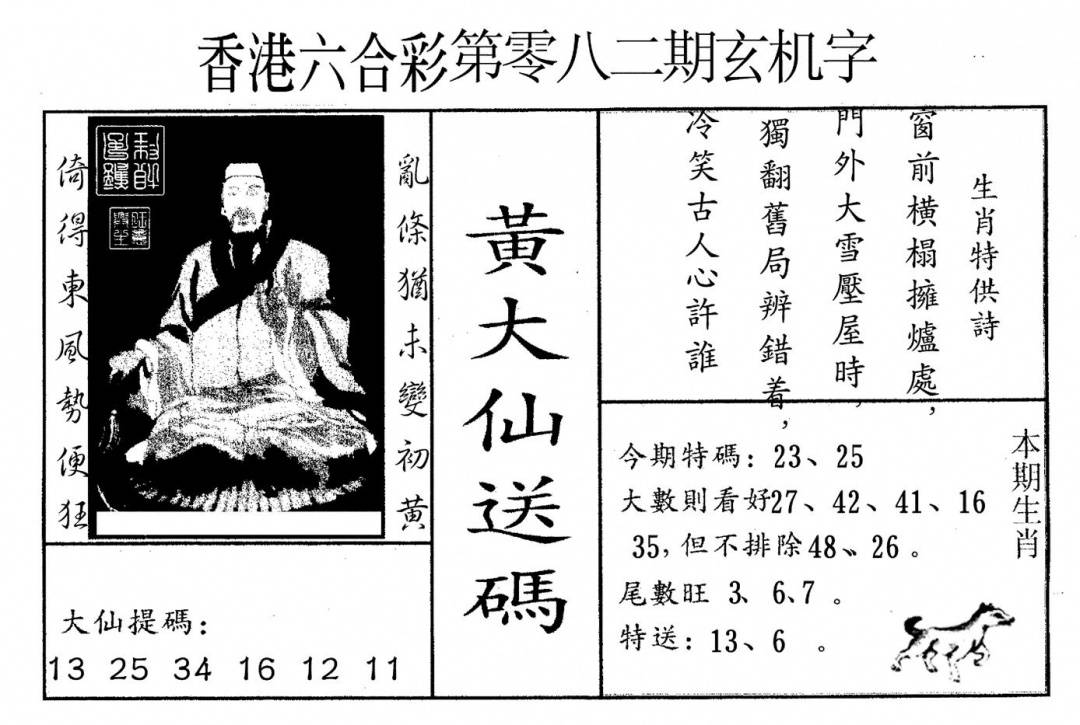 香港六合彩第零八二期玄机字
亂條猶未變初黃
倚得東風勢便狂
大仙提碼:
13 25 34 16 12 11
黃大仙送碼
生肖特供詩
窗前橫榻擁爐處,
門外大雪壓屋時,
獨翻舊局辨錯着,
冷笑古人心許誰
本期生肖
今期特碼: 23、25
大數則看好27、42、41、16
35, 但不排除48、26 。
尾數旺 3、6、7 。
特送: 13、6 。